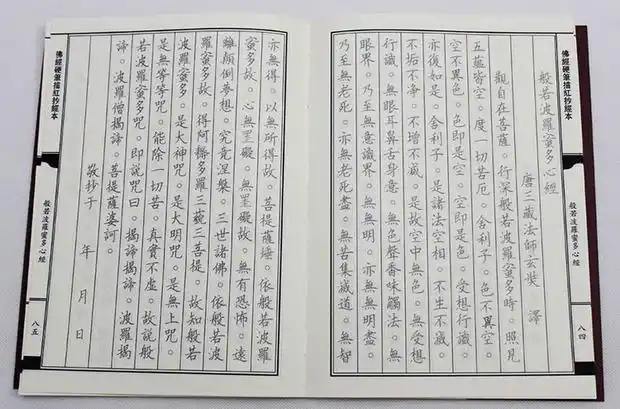 佛經硬筆描紅抄經本
般若波羅蜜多心經
八四
般若波羅蜜多心經
唐三藏法師玄奘 譯
觀自在菩薩。行深般若波羅蜜多時。照見
五蘊皆空。度一切苦厄。舍利子。色不異空。
空不異色。色即是空。空即是色。受想行識。
亦復如是。舍利子。是諸法空相。不生不滅。
不垢不淨。不增不減。是故空中無色。無受想
行識。無眼耳鼻舌身意。無色聲香味觸法。無
眼界。乃至無意識界。無無明。亦無無明盡。
乃至無老死。亦無老死盡。無苦集滅道。無智
亦無得。以無所得故。菩提薩埵。依般若波羅
蜜多故。心無罣礙。無罣礙故。無有恐怖。遠
離顛倒夢想。究竟涅槃。三世諸佛。依般若波
羅蜜多故。得阿耨多羅三藐三菩提。故知般若
波羅蜜多。是大神咒。是大明咒。是無上咒。
是無等等咒。能除一切苦。真實不虛。故說般
若波羅蜜多咒。即說咒曰。揭諦揭諦。波羅揭
諦。波羅僧揭諦。菩提薩婆訶。
敬抄于 年 月 日
佛經硬筆描紅抄經本
般若波羅蜜多心經
八五